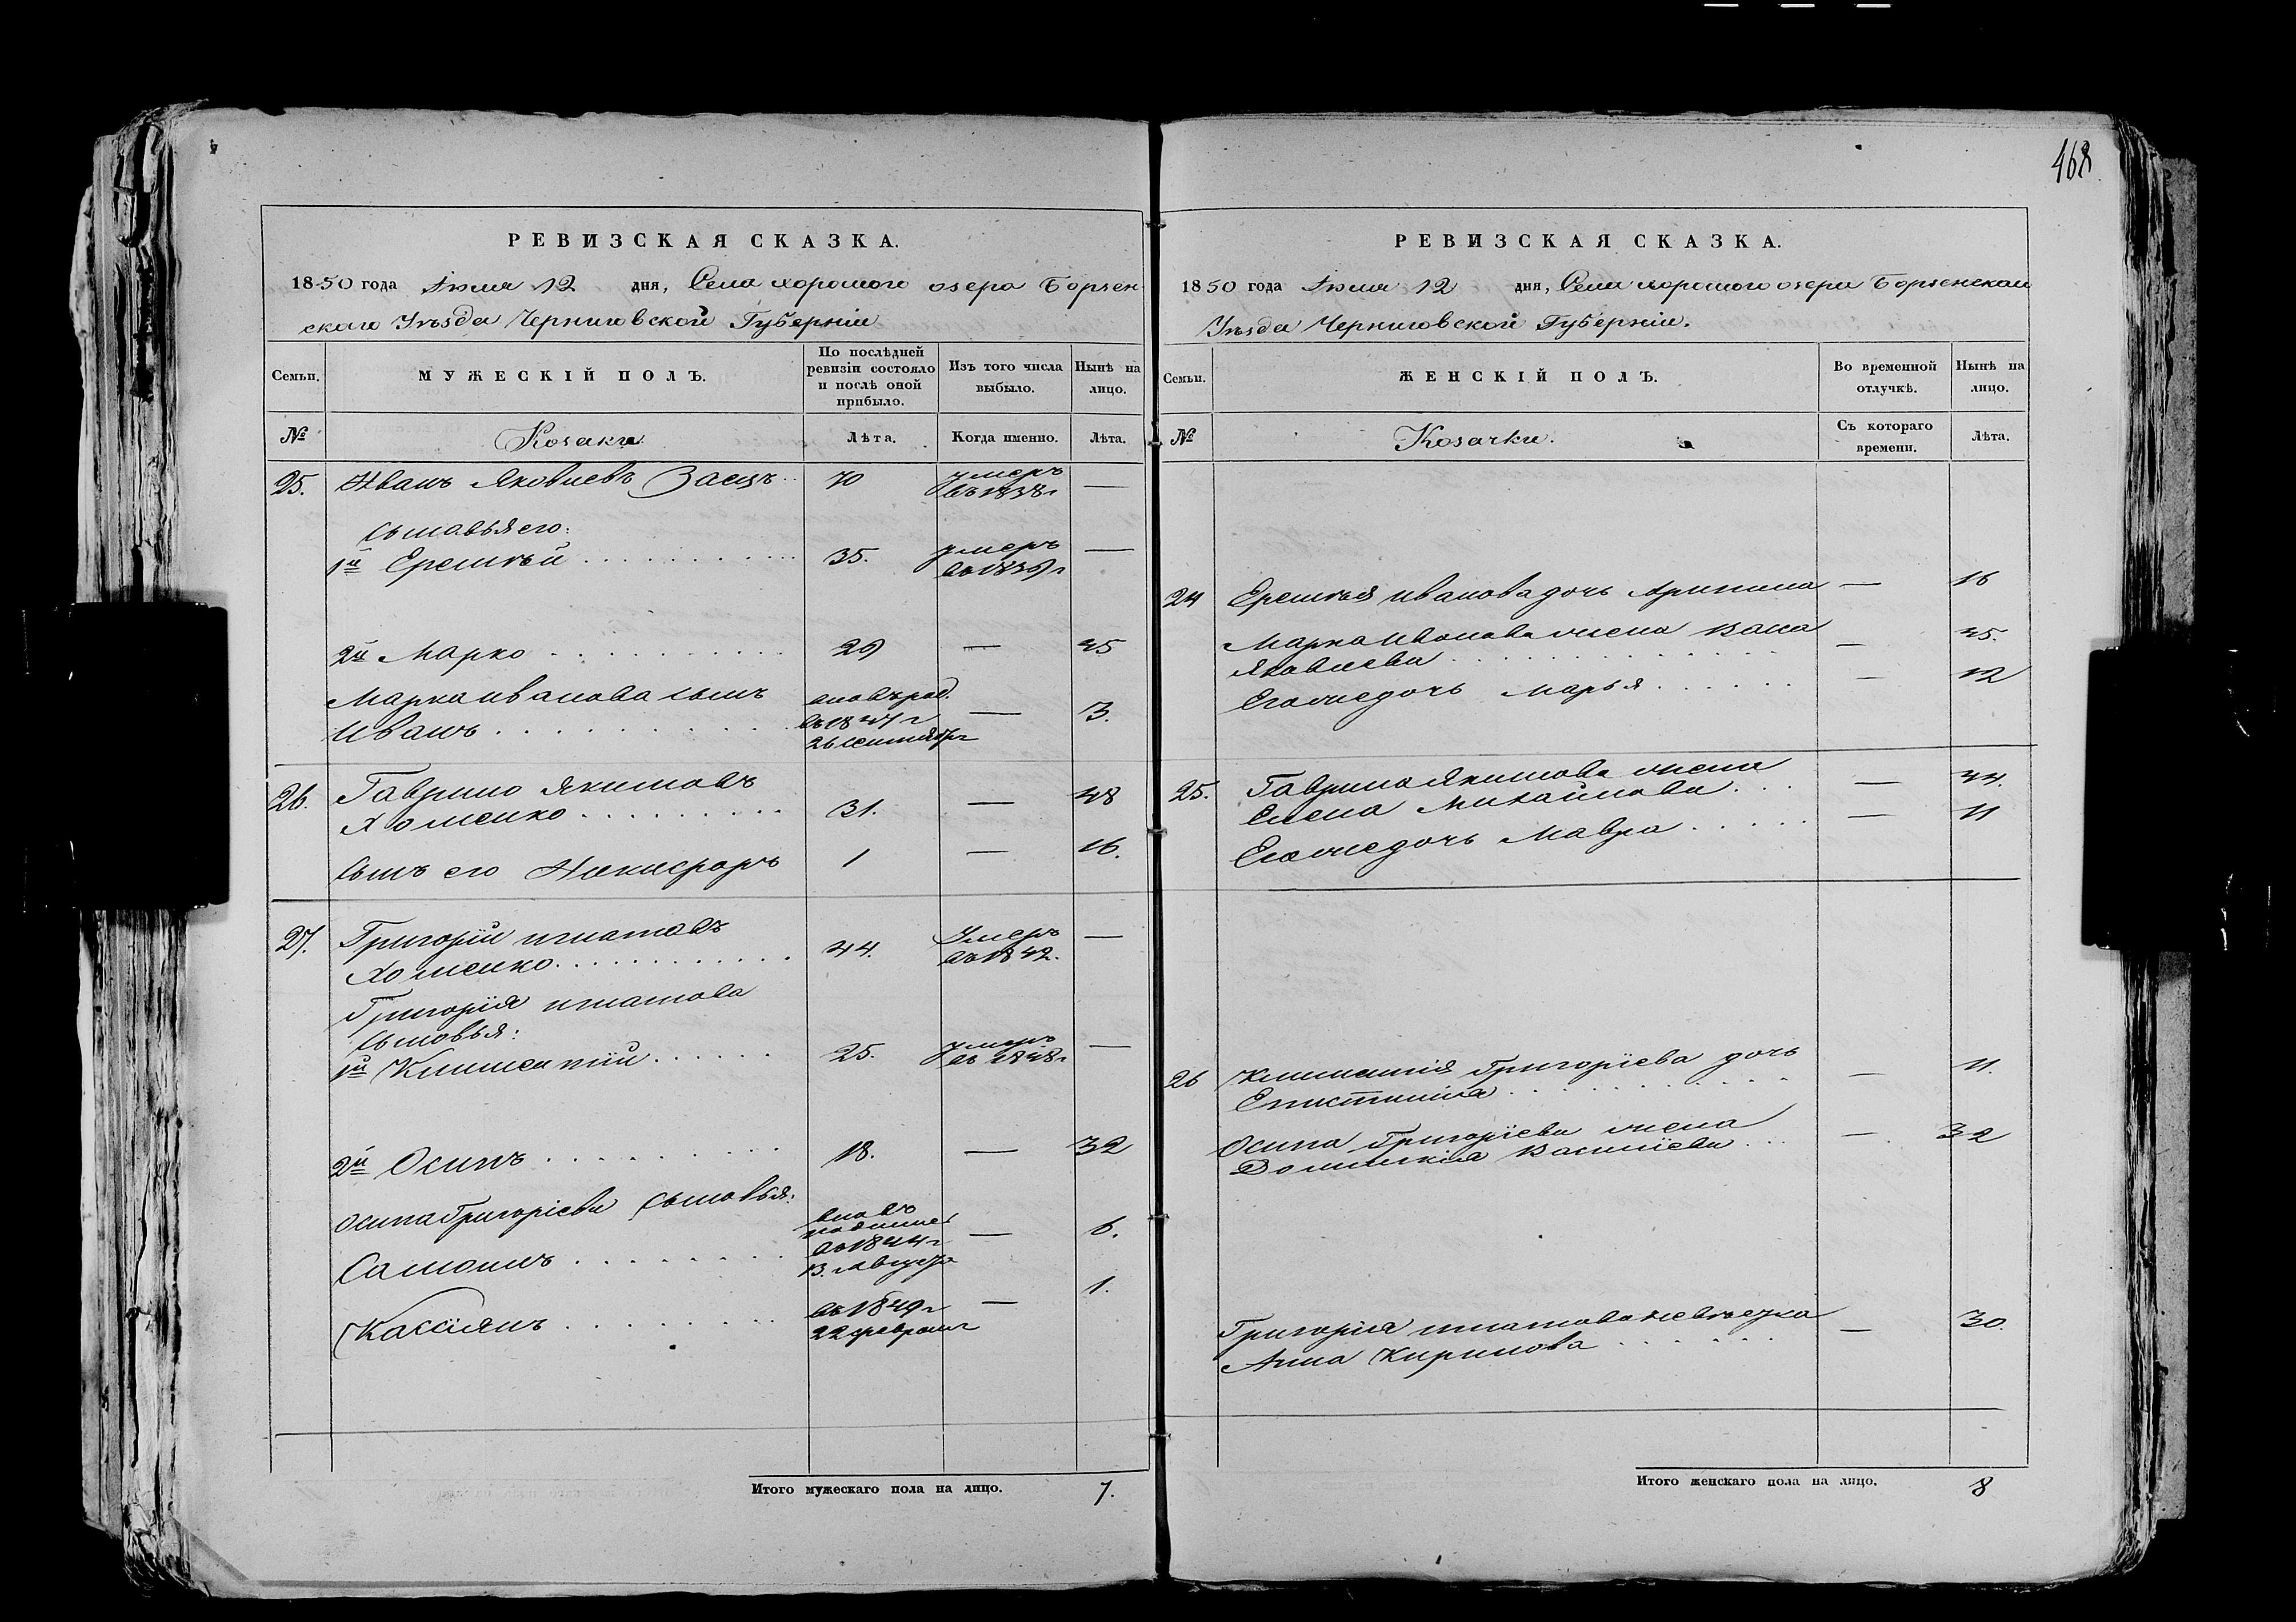 РЕВИЗСКАЯ СКАЗКА.
1850 года Іюля 12 дня, Села хорошого озера Борзен
скаго Уѣзда Черниговской Губерніи
Семьи.
МУЖЕСКІЙ ПОЛЪ.
По послѣдней
ревизіи состояло
и послѣ оной
прибыло.
Изъ того числа
выбыло.
Нынѣ на
лицо.
№
Козаки
Лѣта.
Когда именно.
Лѣта.
25. Иванъ Яковлевъ Заецъ 70 умеръ —
въ 1838 г
Сыновья его:
1й Еремѣй 35. умеръ —
въ 1839 г
2й Марко 29 — 45
Марка иванова сынъ вновь род.
Иванъ въ 1847 г — 3.
26 Сентября
26. Гаврило Якимовъ
Хоменко 31. — 48
Сынъ его Никифоръ 1 — 16.
27. Григорій игнатовъ Умеръ —
Хоменко 44. въ 1842.
Григорія игнатова
Сыновья:
1й Климентій 25. умеръ —
въ 1848 г
2й Осипъ 18. — 32
Осипа Григоріева Сыновья: вновь
въ 1844 г — 6.
Самойлъ 13. Августа
Кассіянъ въ 1849 г — 1.
22 февраля
Итого мужескаго пола на лицо. 7.
468
РЕВИЗСКАЯ СКАЗКА.
1850 года Іюля 12 дня, Села хорошого озера Борзенскаго
Уѣзда Черниговской Губерніи.
Семьи.
ЖЕНСКІЙ ПОЛЪ.
Во временной
отлучкѣ.
Нынѣ на
лицо.
№
Козачки.
Съ котораго
времени.
Лѣта.
24 Еремѣя иванова дочь Арипина — 16
Марка Иванова жена
Яковлева — 45.
Его же дочь Марья — 12
25. Гаврила Якимова жена
Елена Михайлова — 44.
Его же дочь Мавра — 11
26 Климентія Григоріева дочь
Епистимія — 11.
Осипа Григоріева жена
Домникія Василіева — 32
Григорія игнатова невѣстка
Анна Кирилова — 30.
Итого женскаго пола на лицо. 8